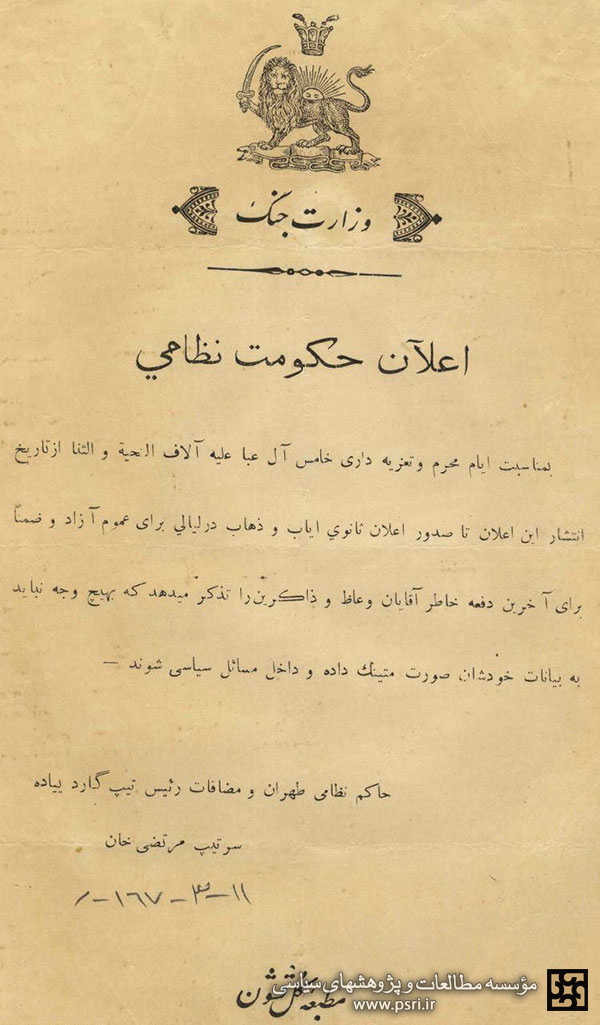 وزارت جنگ
اعلآن حکومت نظامي
بمناسبت ایام محرم وتعزیه داری خامس آل عبا علیه آلاف التحیة و الثنا ازتاریخ
انتشار این اعلان تا صدور اعلان ثانوي ایاب و ذهاب درلیالي برای عموم آزاد و ضمناً
برای آخرین دفعه خاطر آقایان وعاظ و ذاکرین را تذکر میدهد که بهیچ وجه نباید
به بیانات خودشان صورت متینك داده و داخل مسائل سیاسی شوند —
حاکم نظامی طهران و مضافات رئیس تیپ گارد پیاده
سرتیپ مرتضی خان
مطبعه کل قشون
مؤسسه مطالعات و پژوهشهای سیاسی
www.psri.ir